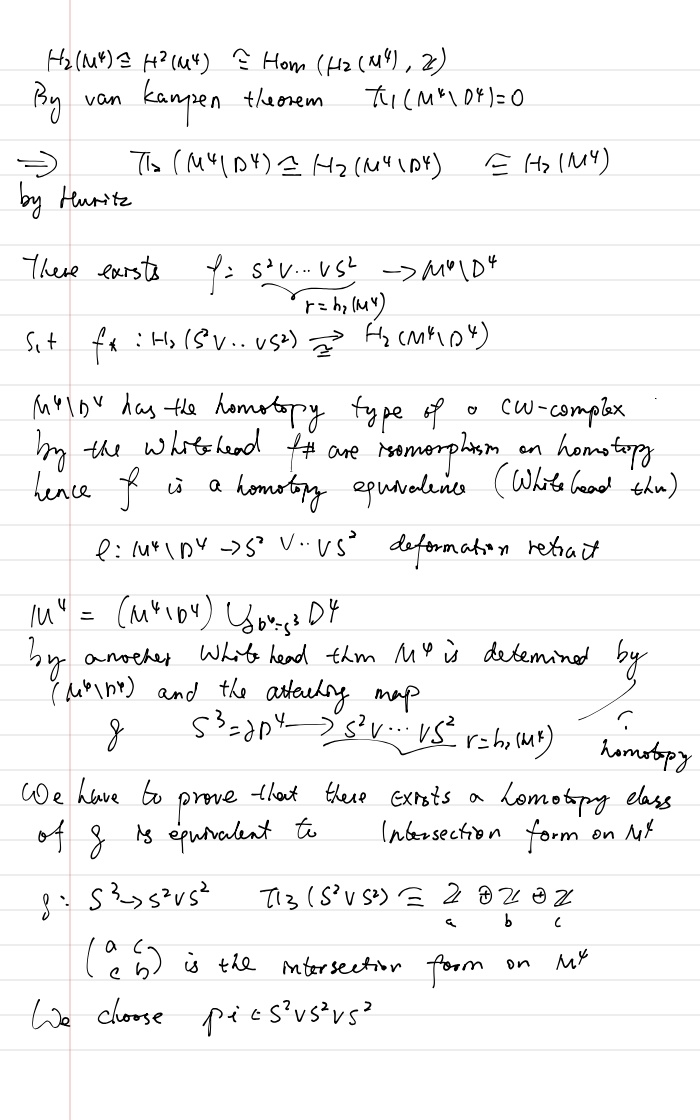 H₂(M⁴) ≅ H²(M⁴) ≅ Hom (H₂(M⁴), ℤ)
By van kampen theorem π₁(M⁴\D⁴)=0
⇒ π₂(M⁴\D⁴) ≅ H₂(M⁴\D⁴) ≅ H₂(M⁴)
by Huritz
There exists f: S²∨···∨S² → M⁴\D⁴
r=b₂(M⁴)
s.t f* : H₂(S²∨..∨S²) ⥲ H₂(M⁴\D⁴)
M⁴\D⁴ has the homotopy type of a CW-complex
by the Whitehead f# are isomorphism on homotopy
hence f is a homotopy equivalence (Whitehead thm)
ℓ: M⁴\D⁴ → S² ∨··∨S² deformation retract
M⁴ = (M⁴\D⁴) ∪∂D⁴=S³ D⁴
by another Whitehead thm M⁴ is detemined by
(M⁴\D⁴) and the attaching map
g S³=∂D⁴ → S²∨···∨S² r=b₂(M⁴)
?
homotopy
We have to prove that there exists a homotopy class
of g is equivalent to Intersection form on M⁴
g: S³→S²∨S² π₃(S²∨S²) ≅ ℤ ⊕ ℤ ⊕ ℤ
a b c
(a c
c b) is the intersection form on M⁴
We choose pi ∈ S²∨S²∨S²